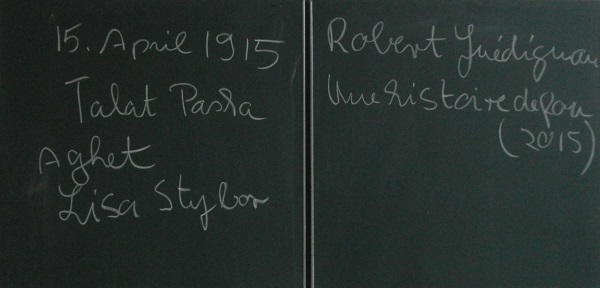 15. April 1915
Talat Pasha
Aghet
Lisa Stybor
Robert Guédiguan
Une histoire de fou
(2015)